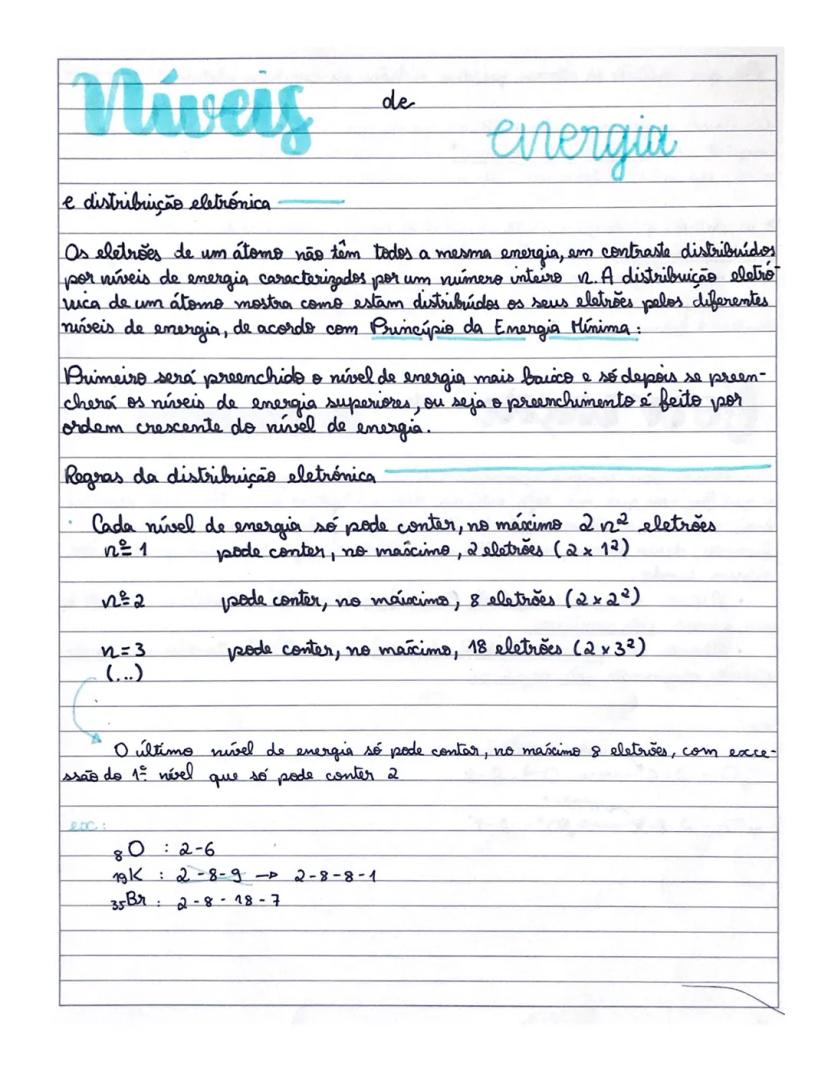 Níveis de energia
e distribuição eletrónica
Os eletrões de um átomo não têm todos a mesma energia, em contraste distribuídos
por níveis de energia caracterizados por um número inteiro n. A distribuição eletró
nica de um átomo mostra como estam distribuídos os seus eletrões pelos diferentes
níveis de energia, de acordo com Princípio da Energia Mínima:
Primeiro será preenchido o nível de energia mais baixo e só depois se preen-
cherá os níveis de energia superiores, ou seja o preenchimento é feito por
ordem crescente do nível de energia.
Regras da distribuição eletrónica
· Cada nível de energia só pode conter, no máximo 2n² eletrões
nº 1 pode conter, no máximo, 2 eletrões (2 x 1²)
nº 2 pode conter, no máximo, 8 eletrões (2 x 2²)
n = 3 pode conter, no máximo, 18 eletrões (2 x 3²)
(...)
O último nível de energia só pode contar, no máximo 8 eletrões, com exce-
ssão do 1º nível que só pode conter 2
ex:
₈O : 2-6
₁₉K : 2-8-9 → 2-8-8-1
₃₅Br : 2-8-18-7